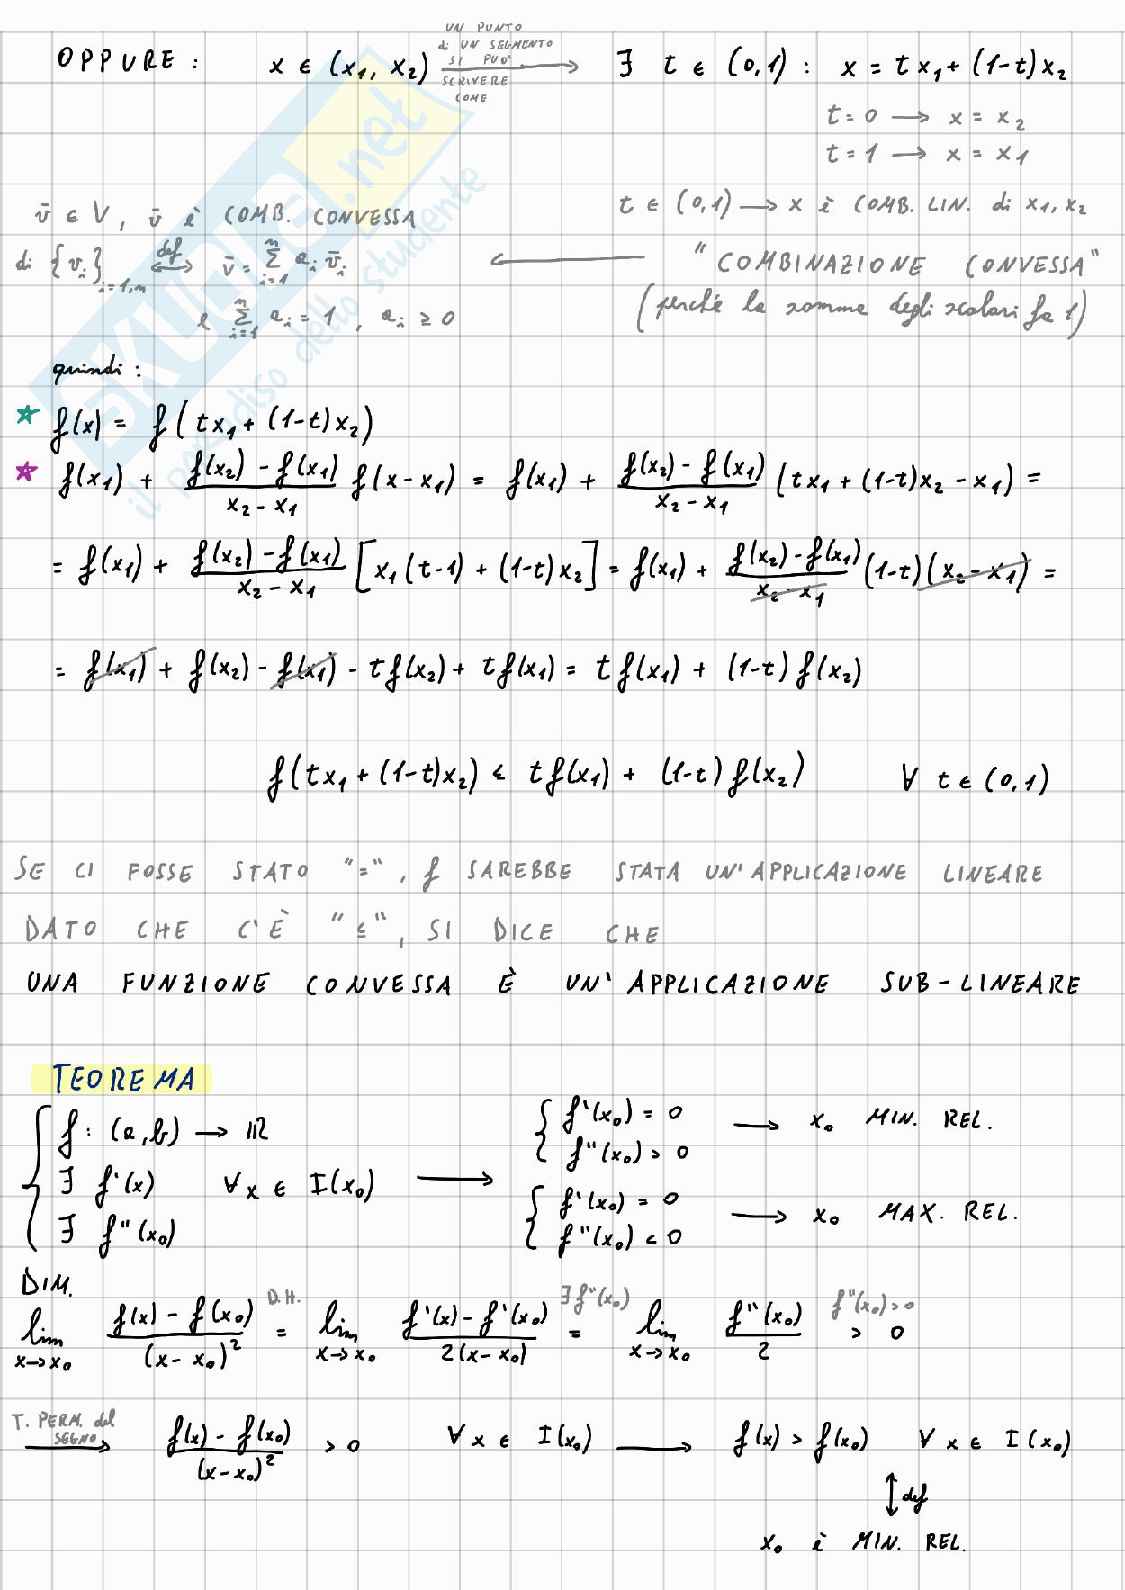 OPPURE : x ∈ (x₁, x₂) UN PUNTO di UN SEGMENTO SI PUO' SCRIVERE COME ⟶ ∃ t ∈ (0,1) : x = t x₁ + (1-t) x₂
t = 0 ⟶ x = x₂
t = 1 ⟶ x = x₁
t ∈ (0,1) ⟶ x è COMB. LIN. di x₁, x₂
v̄ ∈ V, v̄ è COMB. CONVESSA
di {v̄ᵢ}ᵢ₌₁,ₙ ⟷ def v̄ = Σᵢ₌₁ⁿ aᵢ v̄ᵢ ⟵ "COMBINAZIONE CONVESSA"
e Σᵢ₌₁ⁿ aᵢ = 1 , aᵢ ≥ 0 (perché la somma degli scalari fa 1)
quindi :
☆ f(x) = f(tx₁ + (1-t)x₂)
☆ f(x₁) + (f(x₂) - f(x₁))/(x₂ - x₁) f(x - x₁) = f(x₁) + (f(x₂) - f(x₁))/(x₂ - x₁) (tx₁ + (1-t)x₂ - x₁) =
= f(x₁) + (f(x₂) - f(x₁))/(x₂ - x₁) [x₁(t-1) + (1-t)x₂] = f(x₁) + (f(x₂) - f(x₁))/(x₂ - x₁) (1-t)(x₂ - x₁) =
= f(x₁) + f(x₂) - f(x₁) - t f(x₂) + t f(x₁) = t f(x₁) + (1-t) f(x₂)
f(tx₁ + (1-t)x₂) ≤ t f(x₁) + (1-t) f(x₂) ∀ t ∈ (0,1)
SE CI FOSSE STATO "=", f SAREBBE STATA UN'APPLICAZIONE LINEARE
DATO CHE C'È "≤", SI DICE CHE
UNA FUNZIONE CONVESSA È UN'APPLICAZIONE SUB-LINEARE
TEOREMA
{ f : (a,b) ⟶ ℝ
∃ f'(x) ∀ x ∈ I(x₀) ⟶
∃ f''(x₀)
{ f'(x₀) = 0
f''(x₀) > 0 ⟶ x₀ MIN. REL.
{ f'(x₀) = 0
f''(x₀) < 0 ⟶ x₀ MAX. REL.
DIM.
lim x→x₀ (f(x) - f(x₀))/(x - x₀)² = D.H. lim x→x₀ (f'(x) - f'(x₀))/2(x - x₀) = ∃f''(x₀) lim x→x₀ f''(x₀)/2 > 0 f''(x₀)>0
T. PERM. del SEGNO ⟶ (f(x) - f(x₀))/(x - x₀)² > 0 ∀ x ∈ I(x₀) ⟶ f(x) > f(x₀) ∀ x ∈ I(x₀)
↕ def
x₀ è MIN. REL.
SKUOLA.net
il paradiso dello studente